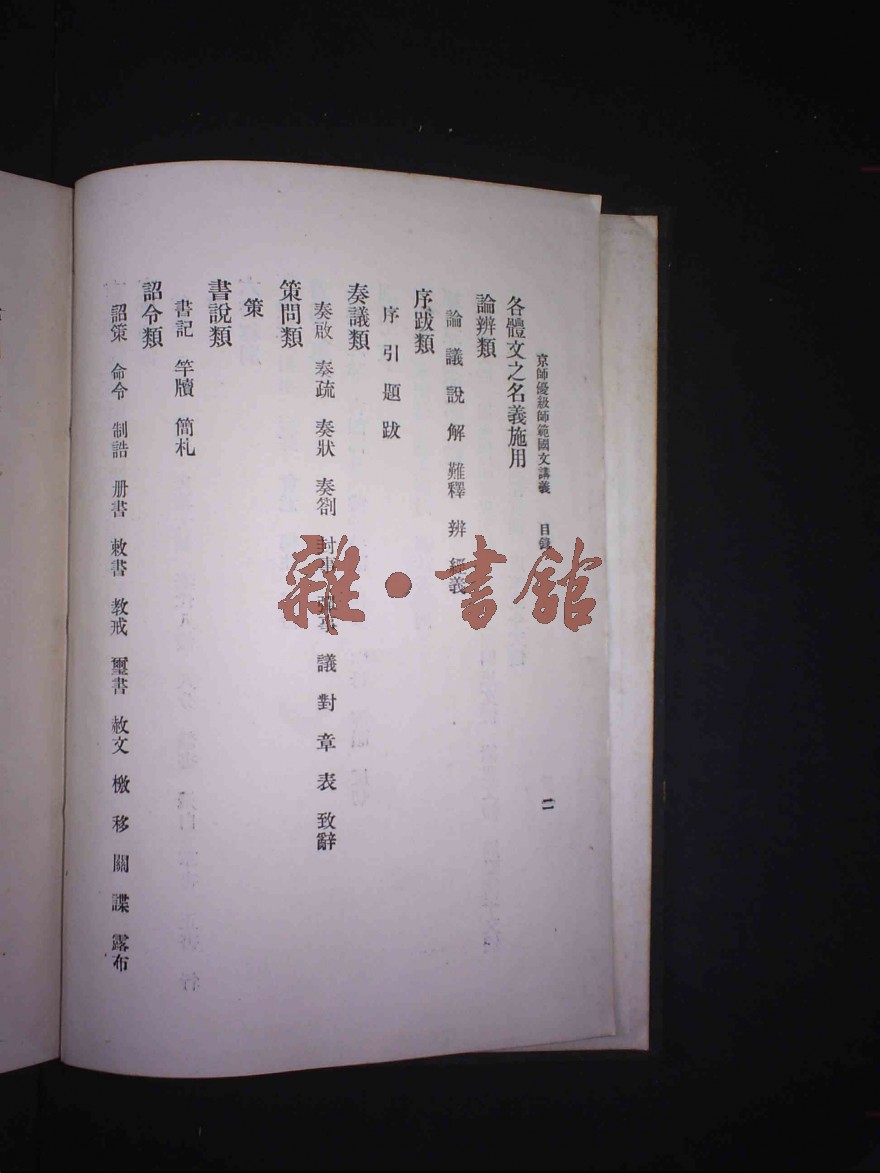 京師優級師範國文講義 目錄 二
各體文之名義施用
論辨類
論 議 說 解 難釋 辨 經義
序跋類
序 引 題 跋
奏議類
奏啟 奏疏 奏狀 奏劄 封事 彈事 議 對 章 表 致辭
策問類
策
書說類
書記 竿牘 簡札
詔令類
詔策 命令 制誥 册書 敕書 教戒 璽書 赦文 檄 移 關 諜 露布
雜·書館